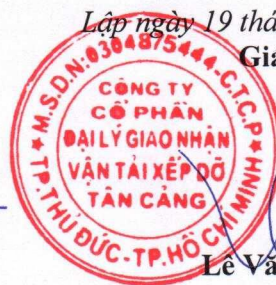 Lập ngày 19 thá
Gia
M.S.D.N:0304875444-C.T.C.P
CÔNG TY
CỔ PHẦN
ĐẠI LÝ GIAO NHẬN
VẬN TẢI XẾP DỠ
TÂN CẢNG
TP.THỦ ĐỨC-TP.HỒ CHÍ MINH
Lê Vă